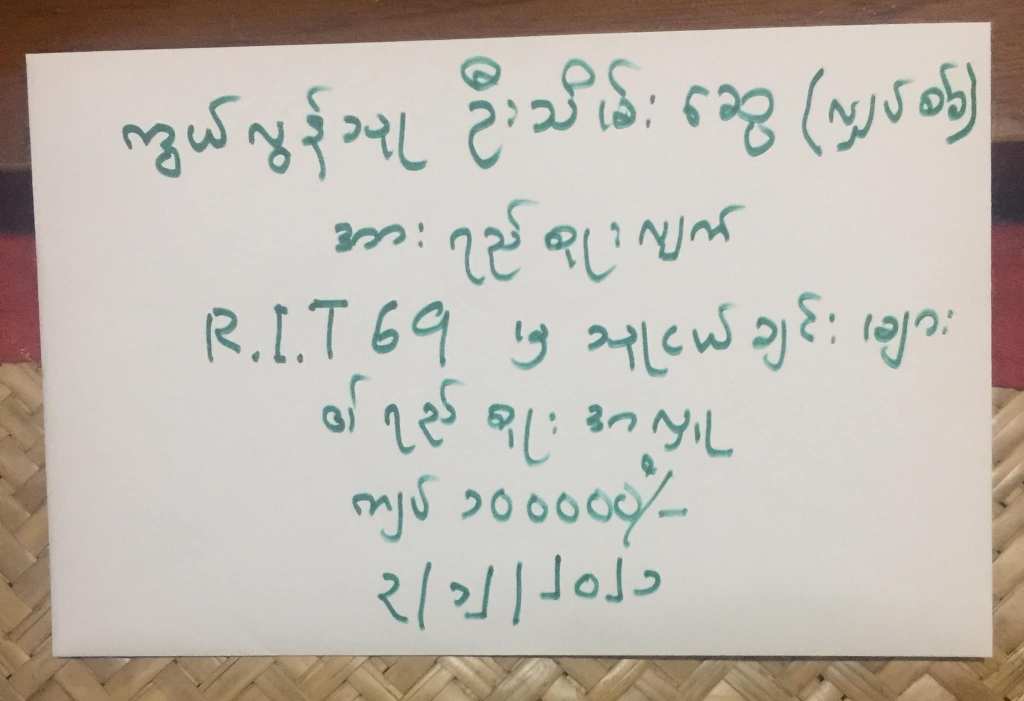 ကွယ်လွန်သူ ဦးသိန်းဆွေ (လျှပ်စစ်)
အား ရည်စူးလျက်
R.I.T 69 မှ သူငယ်ချင်းများ
၏ ရည်စူး အလှူ
ကျပ် ၁၀၀၀၀၀ိ/-
၃/၁၂/၂၀၂၁